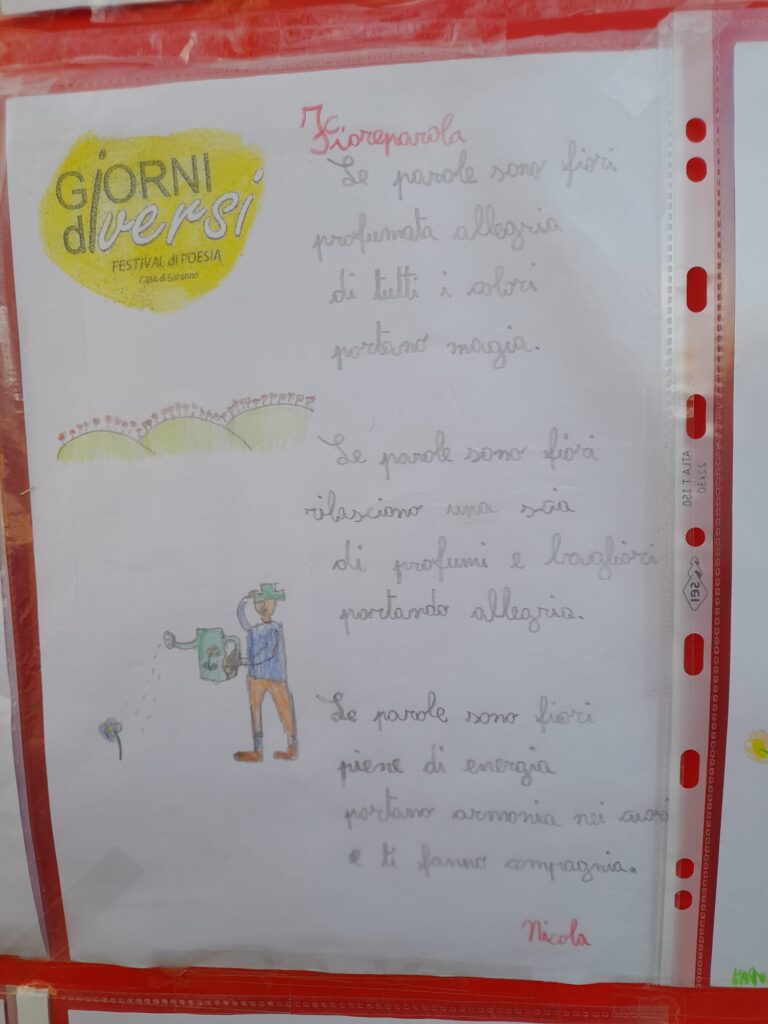 GiORNI
diversi
FESTIVAL di POESIA
Città di Saronno
Fioreparola
Le parole sono fiori
profumata allegria
di tutti i colori
portano magia.
Le parole sono fiori
rilasciono una scia
di profumi e bagliori
portando allegria.
Le parole sono fiori
piene di energia
portano armonia nei cuori
e ti fanno compagnia.
Nicola
ATLA T 150
22x30
SEI